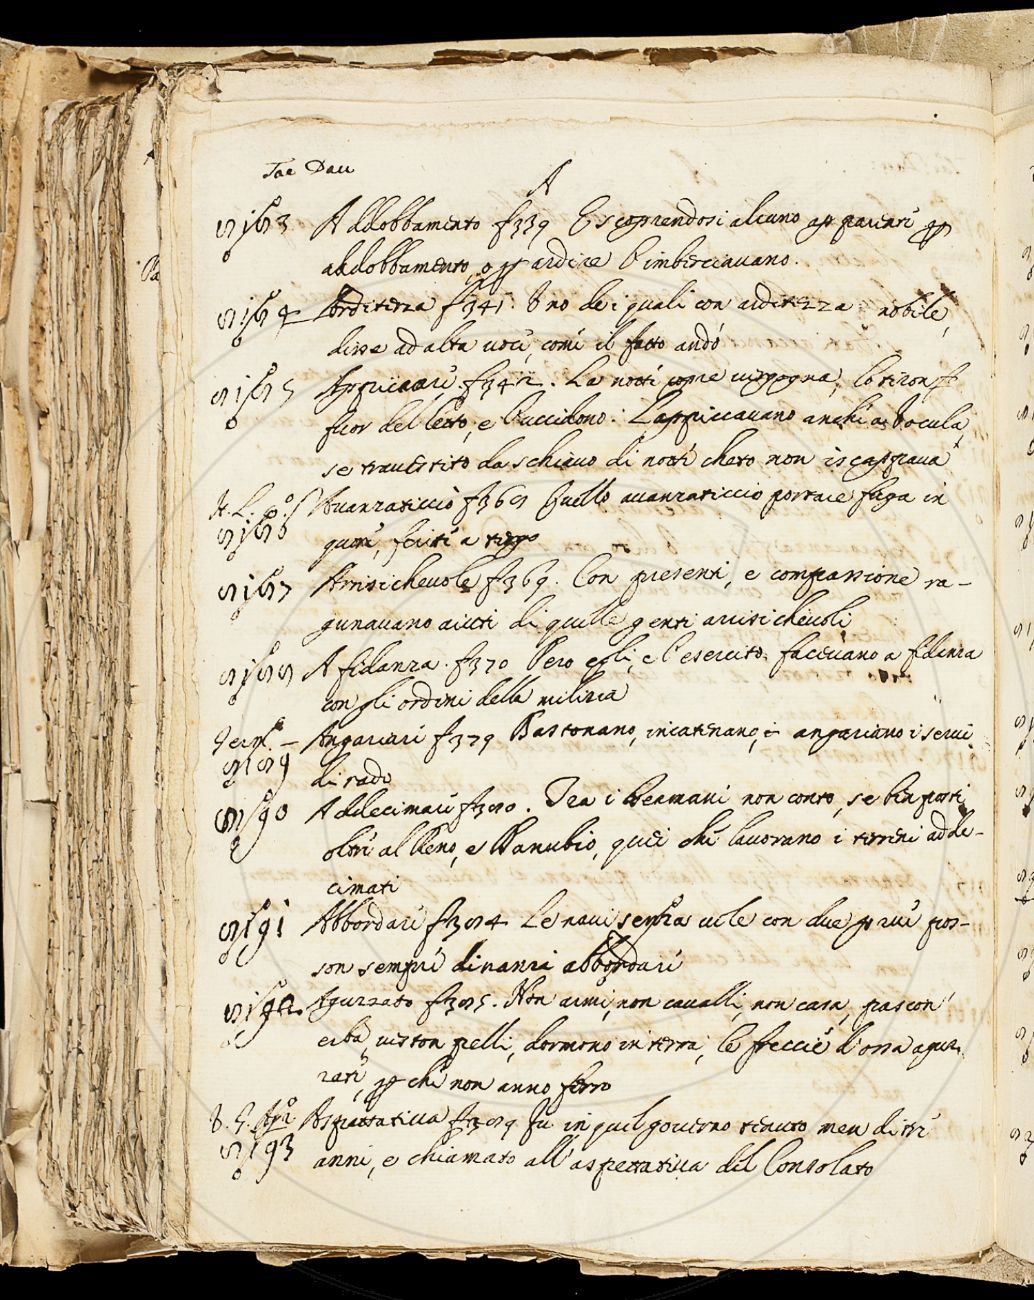 Tac Dau
A
8183 Addobbamento f339 E scoprendosi alcuno apparare p
addobbamento, o p ardire l'imberciavano.
8184 Arditezza f341 Uno dei quali con arditezza nobile,
disse ad alta voce, come il fatto andò
8185 Appiccare f342. La notte come vergogna, lo tiron
fuor del letto, e l'uccidono. L'appiccavano anche a
se travestito da schiavo di notte cheto non iscappava
8186 Avanzaticcio f368 Quello avanzaticcio portare fuga in
ferite a tergo
8187 Arrisichevole f369. Con presenti, e compassione ra-
gunavano aiuti di quelle genti arrisichevoli
8188 A fidanza. f370 Pero egli, e l'esercito facevano a fidanza
con gli ordini della milizia
8189 Angariare f379 Bastonano, incatenano, e angariano i servi
di rado
8190 Addecimare f380. Tra i Germani non conto, se ben posti
oltre al Reno, e Danubio, quei che lavorano i terreni adde-
cimati
8191 Abbordare f384 Le navi senza vele con due prue pos-
son sempre dinanzi abbordare
8192. Aguzzato f385. Non armi, non cavalli, non casa, pascon
erba, veston pelli, dormono in terra, le freccie d'ossa aguz
zate, p che non anno ferro
8193 Aspettativa f389 fu in quel governo tenuto men di tre
anni, e chiamato all'aspettativa del Consolato